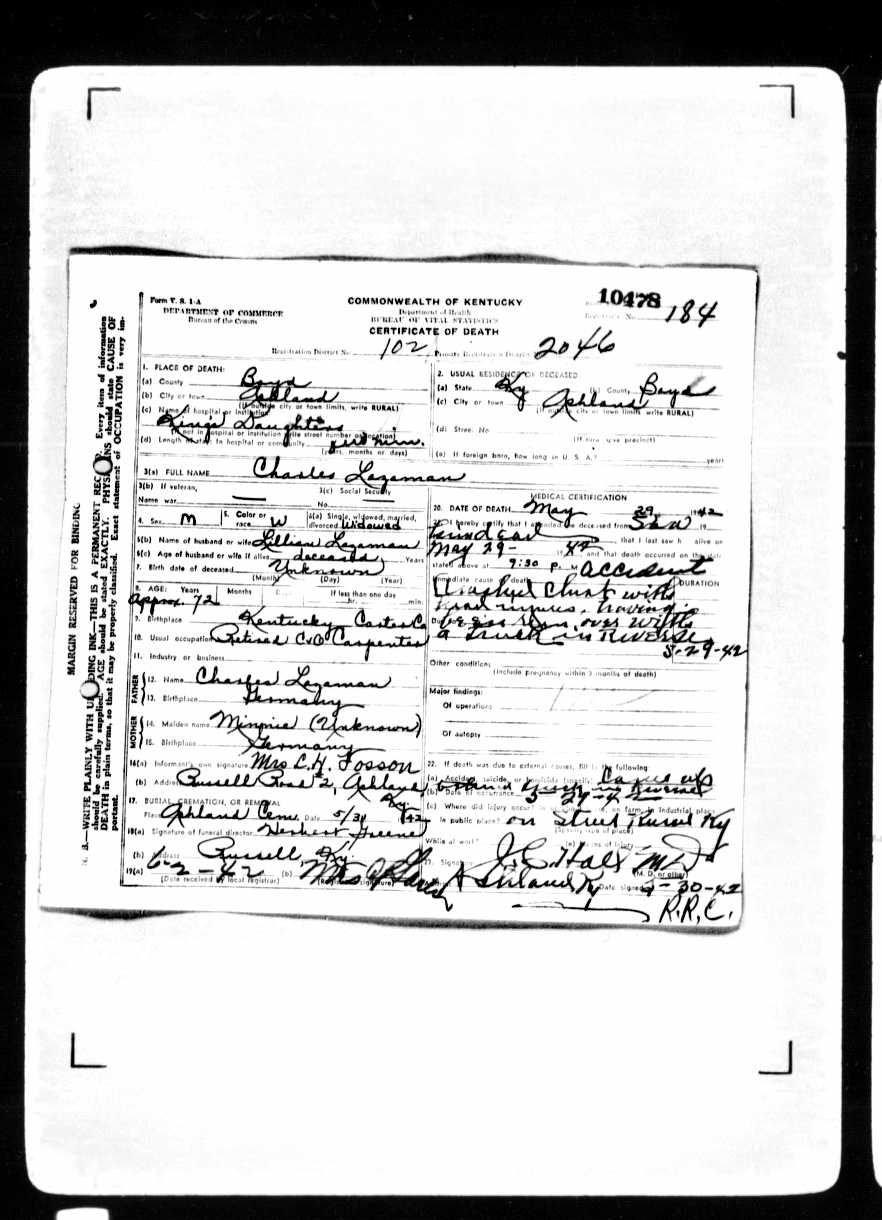 Form V. S. 1-A
DEPARTMENT OF COMMERCE
Bureau of the Census
COMMONWEALTH OF KENTUCKY
Department of Health
BUREAU OF VITAL STATISTICS
CERTIFICATE OF DEATH
10478
Registrar's No. 184
Registration District No. 102 Primary Registration District 2046
MARGIN RESERVED FOR BINDING
N. B.—WRITE PLAINLY WITH INK—THIS IS A PERMANENT Every item of information
should be carefully supplied. AGE should be stated EXACTLY. should state CAUSE OF
DEATH in plain terms, so that it may be properly classified. Exact statement of OCCUPATION is very im-
portant.
1. PLACE OF DEATH:
(a) County Boyd
(b) City or town Ashland
(If outside city or town limits, write RURAL)
(c) Name of hospital or institution
King's Daughters
(If not in hospital or institution write street number or location)
(d) Length of stay: In hospital or community few min.
(years, months or days)
2. USUAL RESIDENCE OF DECEASED
(a) State Ky (b) County Boyd
(c) City or town Ashland
(If outside city or town limits write RURAL)
(d) Street No.
(If rural give precinct)
(e) If foreign born, how long in U. S. A.? years
3(a) FULL NAME Charles Lazaman
3(b) If veteran,
Name war
3(c) Social Security
No.
4. Sex M
5. Color or
race W
6(a) Single, widowed, married,
divorced Widowed
6(b) Name of husband or wife Lillian Lazaman
6(c) Age of husband or wife if alive deceased Years
7. Birth date of deceased Unknown
(Month) (Day) (Year)
8. AGE: Years Months If less than one day
approx. 72 hr. min.
9. Birthplace Kentucky Carter Co
10. Usual occupation Retired C&O Carpenter
11. Industry or business
FATHER
12. Name Charles Lazaman
13. Birthplace Germany
MOTHER
14. Maiden name Minnie (Unknown)
15. Birthplace Germany
16(a) Informant's own signature Mrs C.H. Fosson
(b) Address Russell Road #2, Ashland, Ky
17. BURIAL, CREMATION, OR REMOVAL
Place Ashland Cem. Date 5/31 42
18(a) Signature of funeral director Herbert Greene
(b) Address Russell, Ky.
19(a) 6-2-42 (b) Mrs
(Date received by local registrar) (Registrar's signature)
MEDICAL CERTIFICATION
20. DATE OF DEATH May 29 1942
21. I hereby certify that I attended the deceased from Saw 19
, that I last saw h alive on
May 29- 1942 and that death occurred on the date
stated above at 9:30 P. M accident
Immediate cause of death DURATION
Crushed Chest with
head injuries, having
Due been run over with
a truck in Reverse
5-29-42
Other conditions
(Include pregnancy within 3 months of death)
Major findings:
Of operations
Of autopsy
22. If death was due to external causes, fill in the following
(a) Accident, suicide, or homicide (specify)
(b) Date of occurrence 5-29-42
(c) Where did injury occur? in or about home, on farm, in industrial place,
in public place? on Street Rural Ky
(Specify type of place)
While at work? (e) Means of injury
23. Signature J.C. Hall M.D.
(M. D. or other)
Ashland Ky Date signed 5-30-42
R.R.C.